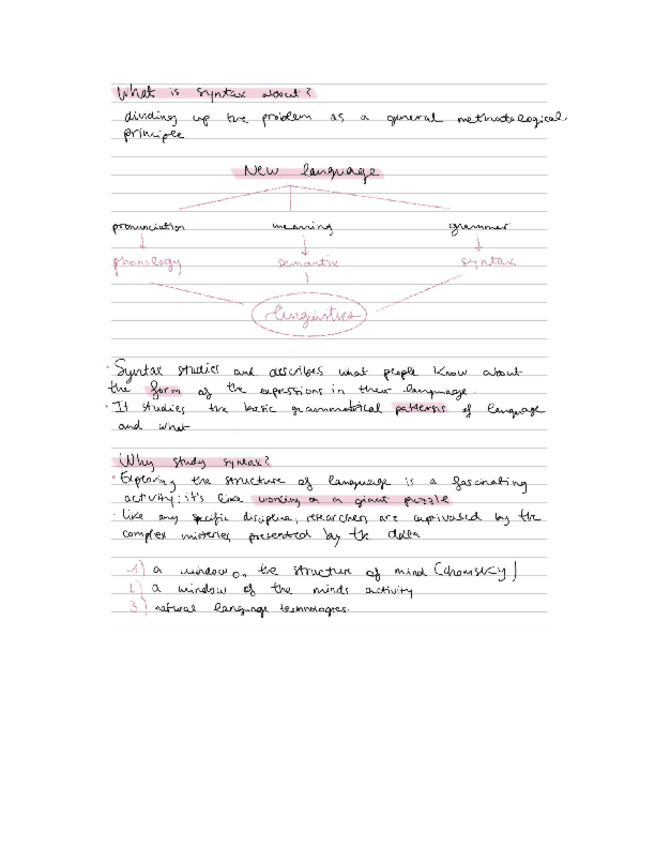 What is syntax about?
dividing up the problem as a general methodological
principle
New language
pronunciation meaning grammar
phonology semantix syntax
linguistics
• Syntax studies and describes what people know about
the form of the expressions in their language
• It studies the basic grammatical patterns of language
and what
Why study syntax?
• Exploring the structure of language is a fascinating
activity; it's like working on a giant puzzle
• like any specific discipline, researchers are captivated by the
complex misteries presented by the data
1) a window on the structure of mind (Chomsky)
2) a window of the minds activity
3) natural language technologies.